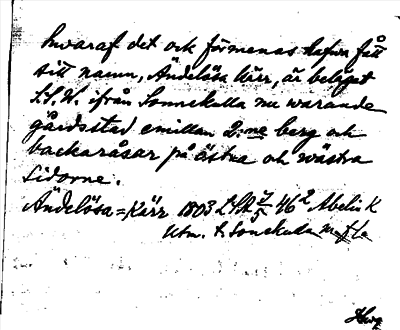 hwaraf det ock förmenas hafwa fått
sitt namn, Ändelösa kärr, är beläget
S.S.W. ifrån Sonnekulla nu warande
gårdsstad emillan 2:ne berg och
backaråsar på östra och wästra
Sidorne.
Ändelösa=Kärr 1803 46² Abelin K
Utm. t. Sonekulla